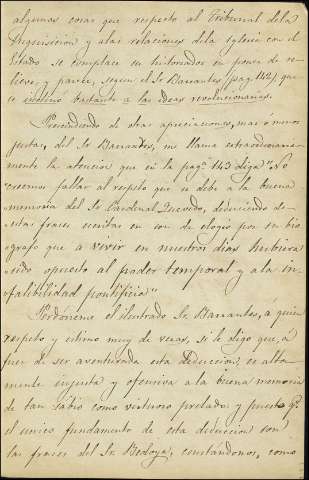 algunas cosas que respecto al Tribunal de la
Inquisicion y a las relaciones dela Iglesia con el
Estado se complace su historiador en poner de re-
lieve, y parece, segun el Sr Barrantes (pag 142) que
se inclinó bastante a las ideas revolucionarias.
Prescindiendo de otras apreciaciones, mas ó menos
justas, del Sr Barrantes, me llama extraordinaria-
mente la atencion que en la pagª 143 diga "No
creemos faltar al respeto que se debe a la buena
memoria del Sr Cardenal Quevedo, deduciendo de
estas frases escritas en son de elogio por su bio
grafo que a vivir en nuestros dias hubiera
sido opuesto al poder temporal y a la in-
falibilidad pontificia"
Perdóneme el ilustrado Sr Barrantes, a quien
respeto y estimo muy de veras, si le digo que, á
fuer de ser aventurada esta deduccion, es alta
mente injusta y ofensiva a la buena memoria
de tan sabio como virtuoso prelado y puesto qe
el unico fundamento de esta deduccion son
las frases del Sr Bedoya, constándonos, como